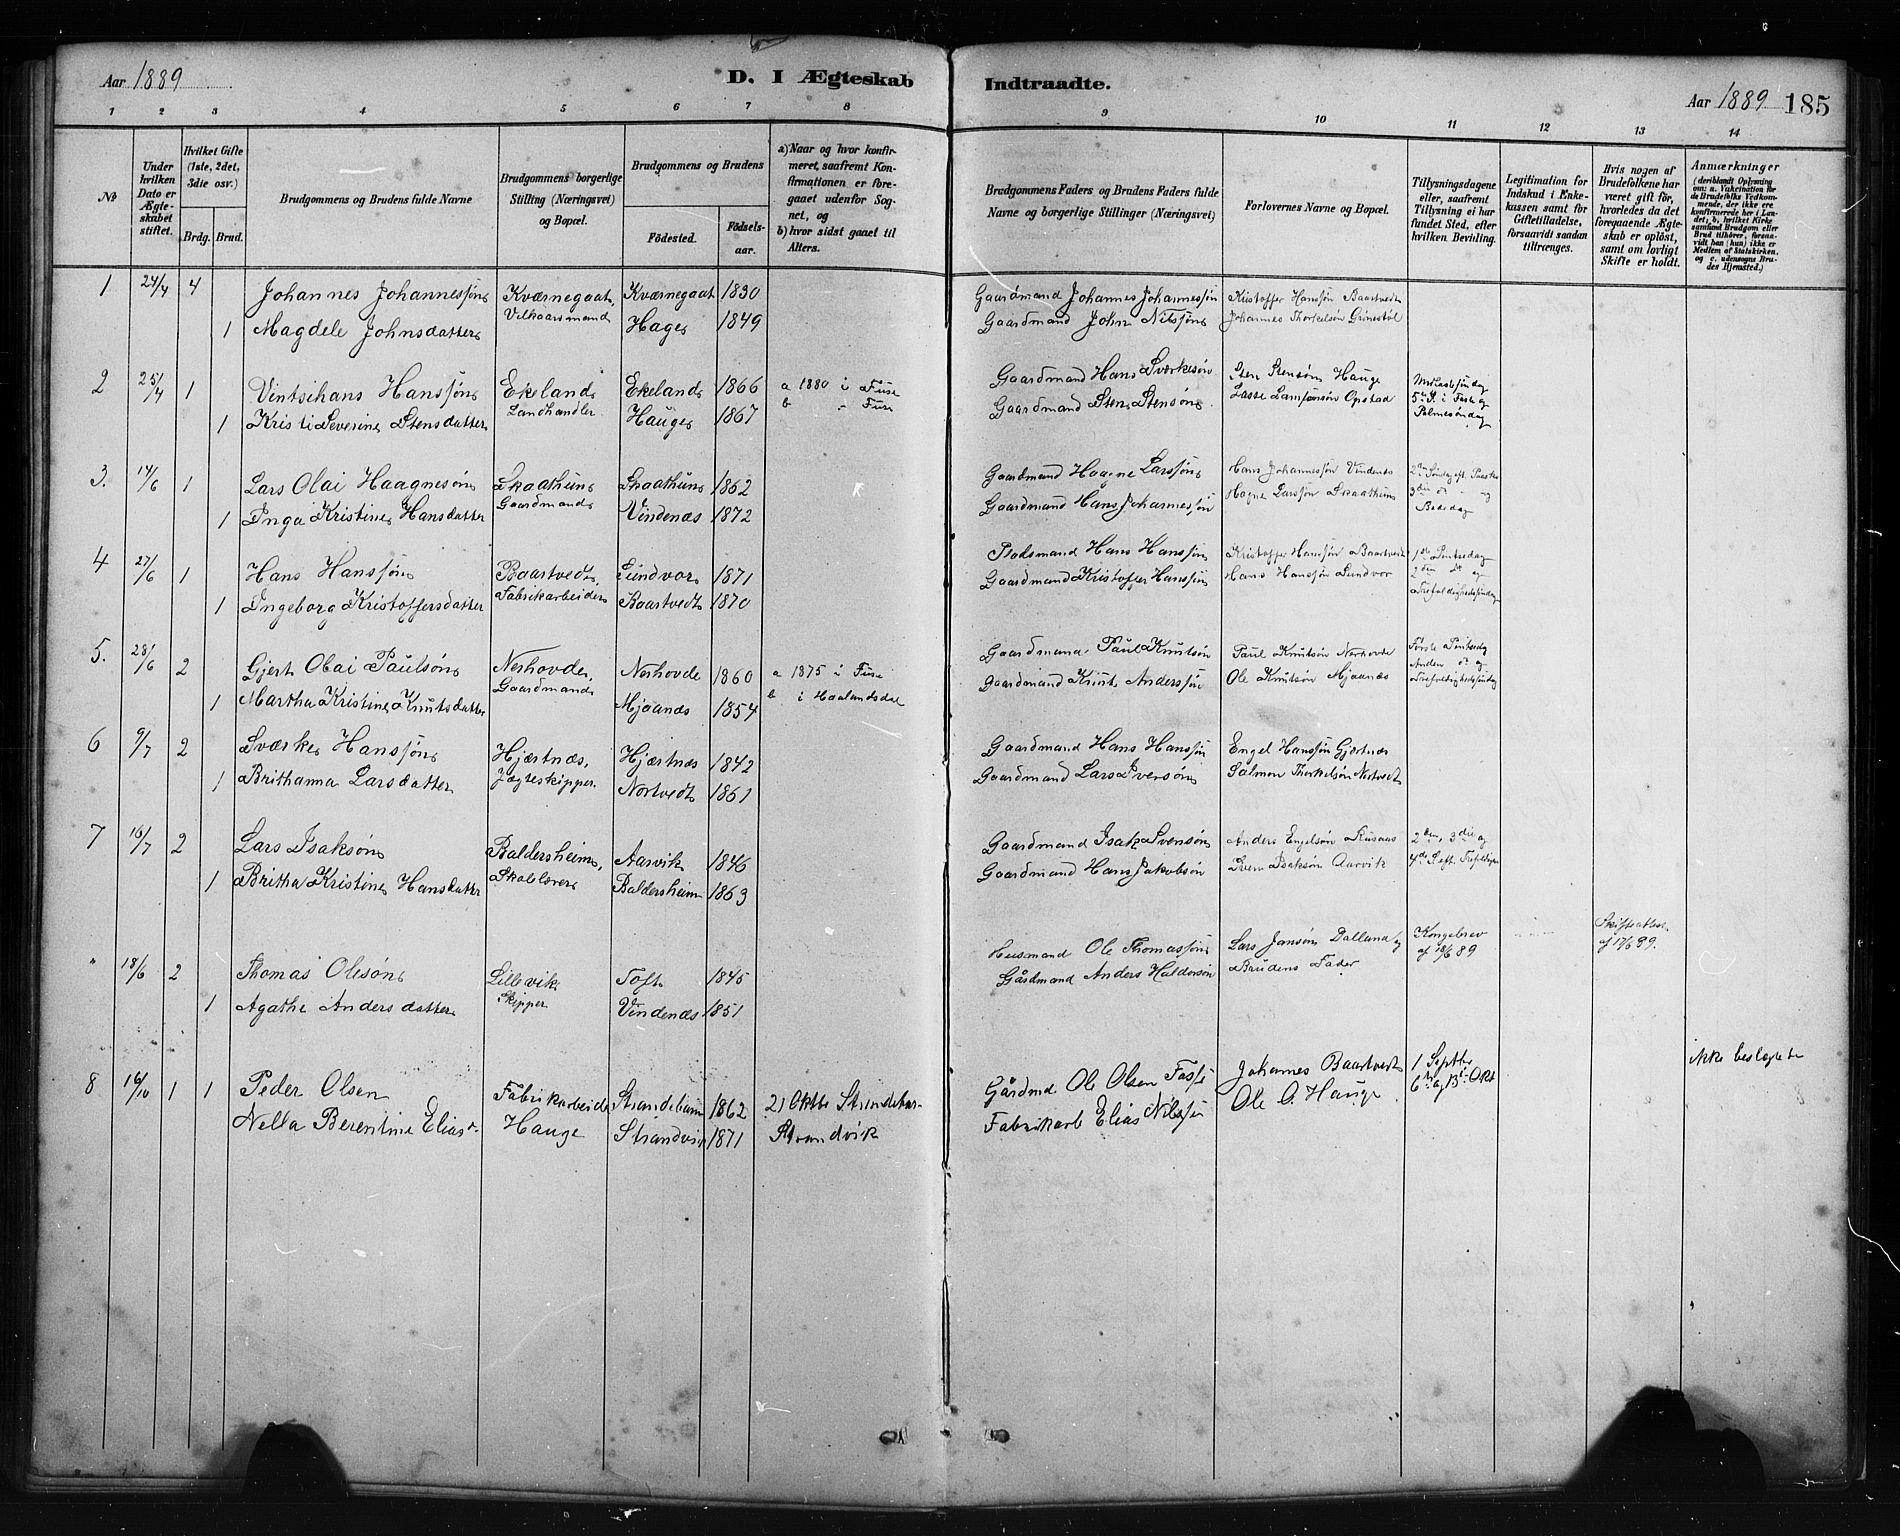 Aar 1889
D. I Ægteskab Indtraadte.
Aar 1889 185
1 2 3 4 5 6 7 8 9 10 11 12 13 14
No
Under hvilken Dato er Ægteskabet stiftet.
Hvilket Gifte (1ste, 2det, 3die osv.)
Brdg. Brud.
Brudgommens og Brudens fulde Navne
Brudgommens borgerlige Stilling (Næringsvei) og Bopæl.
Brudgommens og Brudens
Födested. Födselsaar.
a) Naar og hvor konfirmeret, saafremt Konfirmationen er foregaaet udenfor Sognet, og
b) hvor sidst gaaet til Alters.
Brudgommens Faders og Brudens Faders fulde Navne og borgerlige Stillinger (Næringsvei)
Forlovernes Navne og Bopæl.
Tillysningsdagene eller, saafremt Tillysning ei har fundet Sted, efter hvilken Bevilling.
Legitimation for Indskud i Enkekassen samt for Giftetilladelse, forsaavidt saadan tiltrænges.
Hvis nogen af Brudefolkene har været gift för, hvorledes da det foregaaende Ægteskab er oplöst, samt om lovligt Skifte er holdt.
Anmærkninger (deriblandt Oplysning om: a. Vakcination for de Brudefolks Vedkommende, der ikke ere konfirmerede her i Landet; b. hvilket Kirkesamfund Brudgom eller Brud tilhörer, forsaavidt han (hun) ikke er Medlem af Statskirken, og c. udensogns Brudes Hjemsted.)
1 24/4 4 Johannes Johannessøn Kværnegaat, Kværnegaat 1830 Gaardmand Johannes Johannessøn Kristoffer Hanssøn Baartvedt
Vilkaarsmand
1 Magdele Johnsdatter Hage 1849 Gaardmand John Nilssøn Johannes Thorkelsøn Grønestøl
2 25/4 1 Vintsihans Hanssøn Ekeland Ekeland 1866 a 1880 i Fuse Gaardmand Hans Sværkesøn Sten Stensøn Hauge
Landhandler b " Fuse
1 Kristi Severine Stensdatter Hauge 1867 Gaardmand Sten Stensøn Lasse Opstad
5te S. i Faste og
Palmesøndag
3. 14/6 1 Lars Olai Haagnesøn Skaathun Skaathun 1862 Gaardmand Hagne Larssøn Hans Johannessøn Vindenes
Gaardmand
1 Inga Kristine Hansdatter Vindenæs 1872 Gaardmand Hans Johannessøn Hagne Larssøn Skaathun
3die do - og
Bededag
4 27/6 1 Hans Hanssøn Baartvedt, Sundvor 1871 Pladsmand Hans Hanssøn Kristoffer Hanssøn Baartvedt 1ste Pintsedag
Fabrikarbeider 2den do og
1 Ingeborg Kristoffersdatter Baartvedt 1870 Gaardmand Kristoffer Hanssøn Hans Hanssøn Sundvor
Trefoldighedssøndag
5. 28/6 2 Gjert Olai Paulsøn Nerhovde, Nerhovde 1860 a 1875 i Fuse Gaardmand Paul Knutsøn Paul Knutsøn Nerhovde Første Pintsedag
Gaardmand b i Haalandsdal Anden do og
1 Martha Kristine Knutsdatter Mjaanes 1854 Gaardmand Knut Anderssøn Ole Knutsøn Mjaanes Trefoldighedssøndag
6 9/7 2 Sværke Hanssøn Hjærtnæs, Hjærtnæs 1842 Gaardmand Hans Hanssøn Engel Hanssøn Gjærtnæs
Jægteskipper.
1 Brithanna Larsdatter Nortvedt 1861 Gaardmand Lars Iversøn Salmon Thorkelsøn Nortvedt
7 16/7 2 Lars Isaksøn Baldersheim, Aarvik 1846 Gaardmand Isak Svensøn Anders Engelsøn 2den, 3die og
Skolelærer
1 Britha Kristine Hansdatter Baldersheim 1863 Gaardmand Hans Jakobsøn Sven Isaksøn Aarvik 4de S. eft. Trefoldigh
" 18/6 2 Thomas Olesøn Lillevik Toft 1845 Husmand Ole Thomassøn Lars Jansøn Dalland og Kongebrev
Skipper af 18/6 89
af 17/6 89.
1 Agathe Anders datter Vindenæs 1851 Gårdmand Anders Haldorsøn Brudens Fader
8 16/10 1 1 Peder Olsen Fabrikarbeider Strandebarm 1862 21 Oktbr Strandebar- Gårdmd Ole Olsen Johannes Baartvedt 1 Septbr ikke beslægtede
Nella Berentine Elias d. Hauge Strandvik 1871 Strandvik Fabrikarb Elias Nilssen Ole O. Hauge 6te og 13de Okt